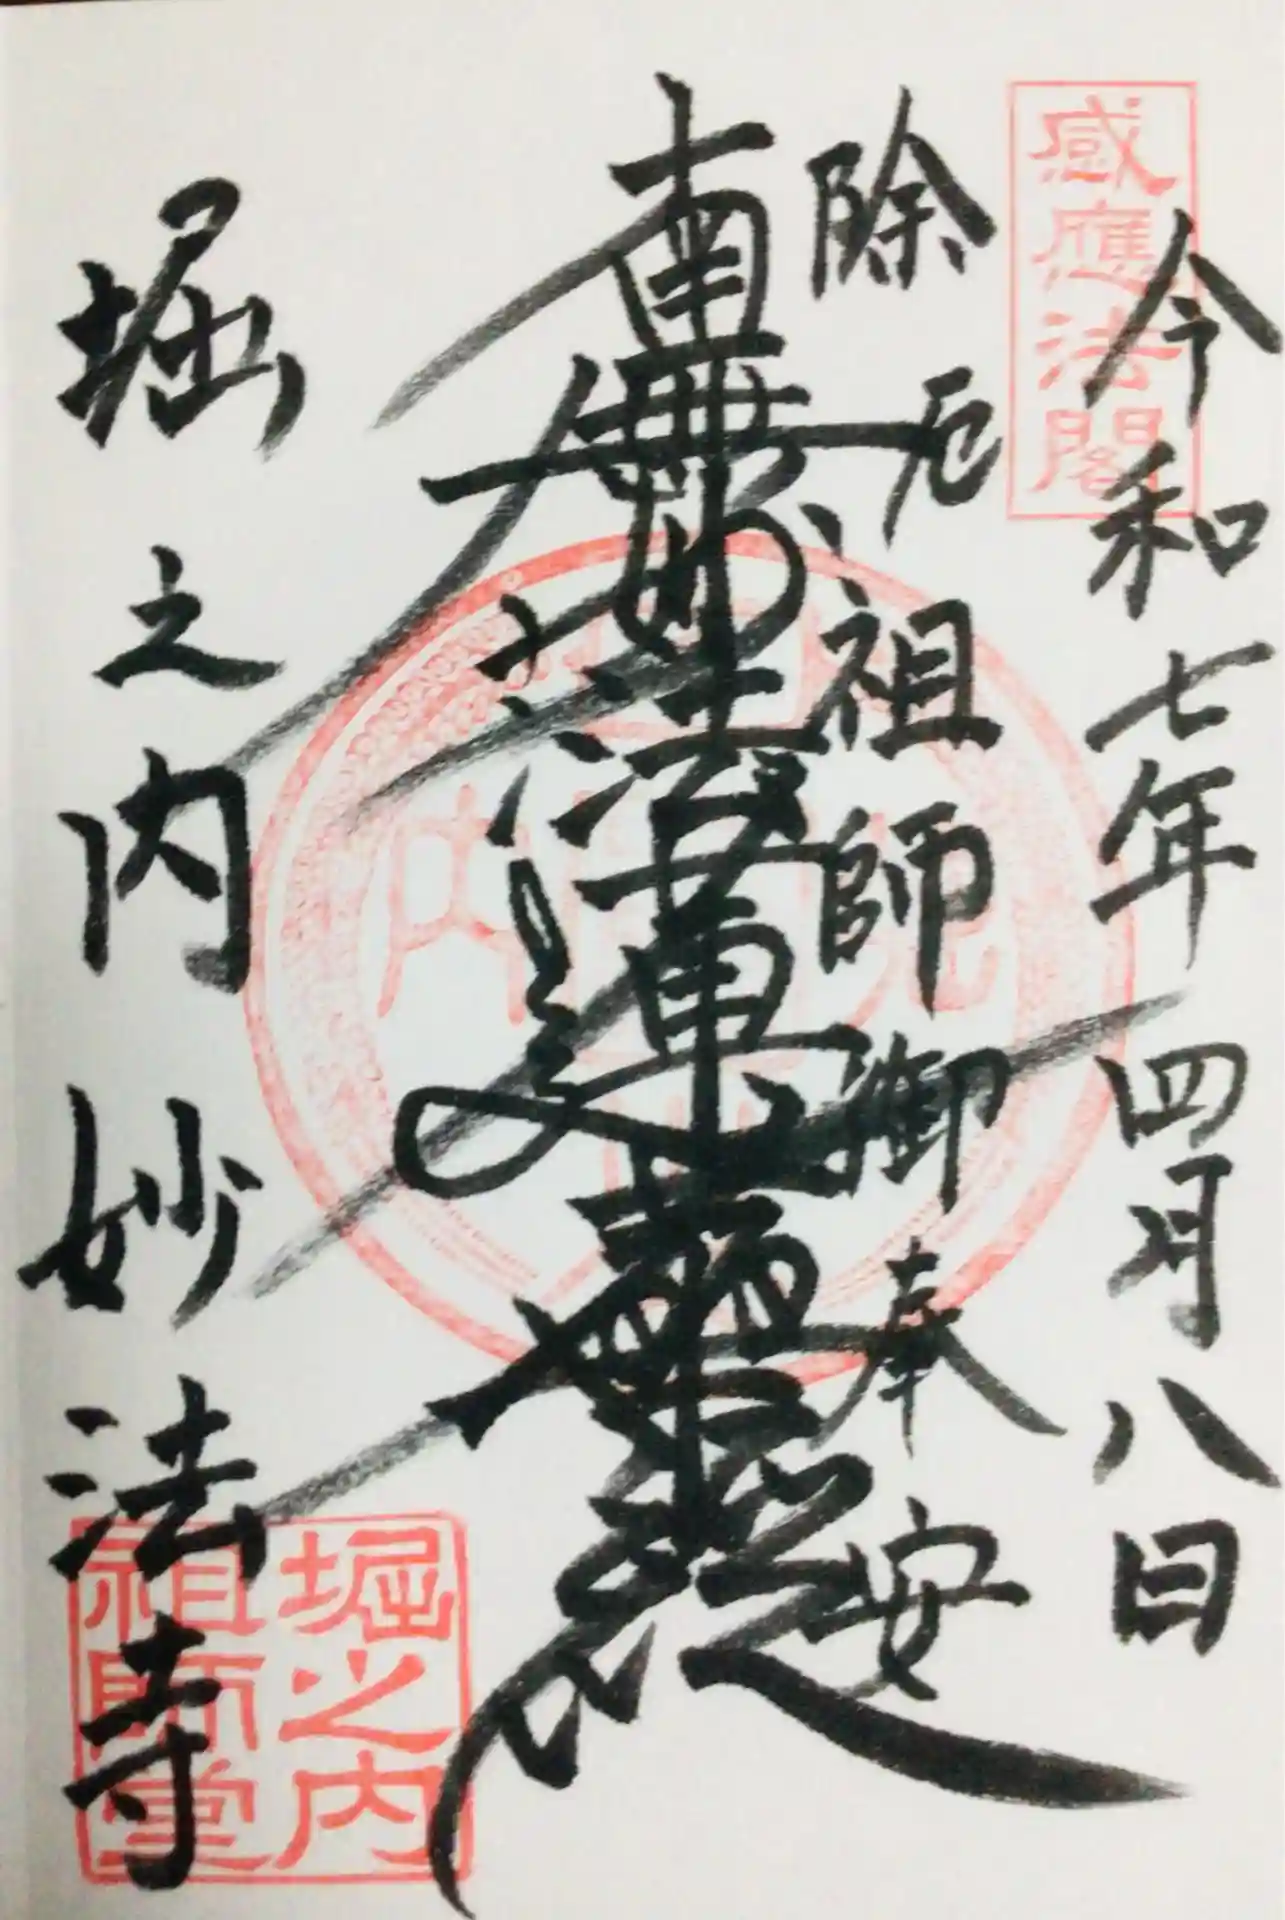 感應法閣
今和七年四月八日
除厄祖師御奉安
南無妙法蓮華経
堀之内妙法寺
堀之内
祖師堂